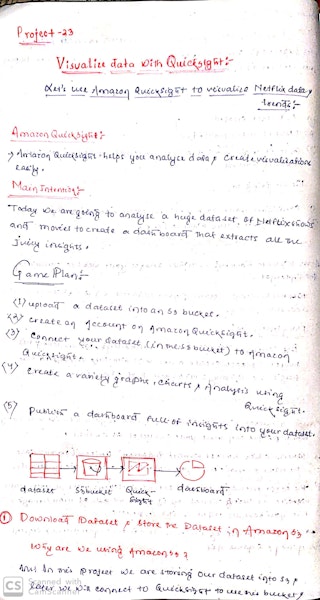 Project -23
Visualize data with Quicksight:-
Let's use Amazon Quicksight to visualize Netflix data &
trends:-
Amazon Quicksight:-
→ Amazon Quicksight helps you analyse data & create visualizations
easily.
Main Intension:-
Today we are going to analyse a huge dataset of Netflix shows
and movies to create a dashboard that extracts all the
juicy insights.
Game Plan:-
(1) upload a dataset into an S3 bucket.
(2) create an Account on Amazon Quicksight.
(3) connect your dataset (in the S3 bucket) to Amazon
Quicksight.
(4) create a variety graphs, charts & Analysis using
Quicksight.
(5) Publish a dashboard full of insights into your dataset.
dataset S3 bucket Quick- dashboard
Sight
① Download Dataset & store the Dataset in Amazon S3
Why are we using Amazon S3?
Ans: In this project we are storing our dataset into S3 &
later we will connect to Quicksight to use this bucket
CS Scanned with
CamScanner